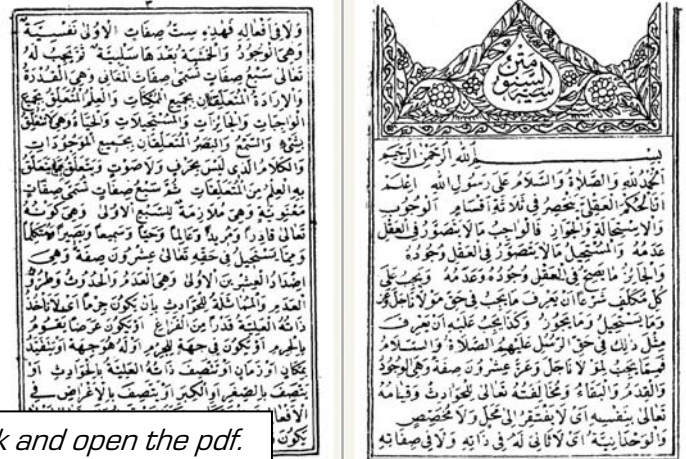 متن
السنوسية
بســــــم الله الرحمن الرحيم
الحمد لله والصلاة والسلام على رسول الله اعلم
ان الحكم العقلي ينحصر في ثلاثة اقسام الوجوب
والاستحالة والجواز فالواجب ما لا يتصور في العقل
عدمه والمستحيل ما لا يتصور في العقل وجوده
والجائز ما يصح في العقل وجوده وعدمه ويجب على
كل مكلف شرعا ان يعرف ما يجب في حق مولانا جل وعز
وما يستحيل وما يجوز وكذا يجب عليه ان يعرف
مثل ذلك في حق الرسل عليهم الصلاة والسلام
فمما يجب لمولانا جل وعز عشرون صفة وهي الوجود
والقدم والبقاء ومخالفته تعالى للحوادث وقيامه
تعالى بنفسه اى لا يفتقر الى محل ولا مخصص
والوحدانية اى لا ثانى له في ذاته ولا في صفاته
٣
ولا في افعاله فهذه ست صفات الاولى نفسية
وهي الوجود والخمسة بعدها سلبية ثم يجب له
تعالى سبع صفات تسمى صفات المعانى وهي القدرة
والارادة المتعلقتان بجميع الممكنات والعلم المتعلق بجميع
الواجبات والجائزات والمستحيلات والحياة وهي لا تتعلق
بشيء والسمع والبصر المتعلقان بجميع الموجودات
والكلام الذى ليس بحرف ولا صوت ويتعلق بما يتعلق
به العلم من المتعلقات ثم سبع صفات تسمى صفات
معنوية وهي ملازمة للسبع الاولى وهي كونه
تعالى قادرا ومريدا وعالما وحيا وسميعا وبصيرا متكلما
ومما يستحيل في حقه تعالى عشرون صفة وهي
اضداد العشرين الاولى وهي العدم والحدوث وطرو
العدم والمماثلة للحوادث بان يكون جرما اى تاخذ
ذاته العلية قدرا من الفراغ او يكون عرضا يقوم
بالجرم او يكون في جهة للجرم او له هو جهة او يتقيد
بمكان او زمان او تتصف ذاته العلية بالحوادث او
يتصف بالصغر او الكبر او يتصف بالاغراض في
الافعال
يكون
k and open the pdf.